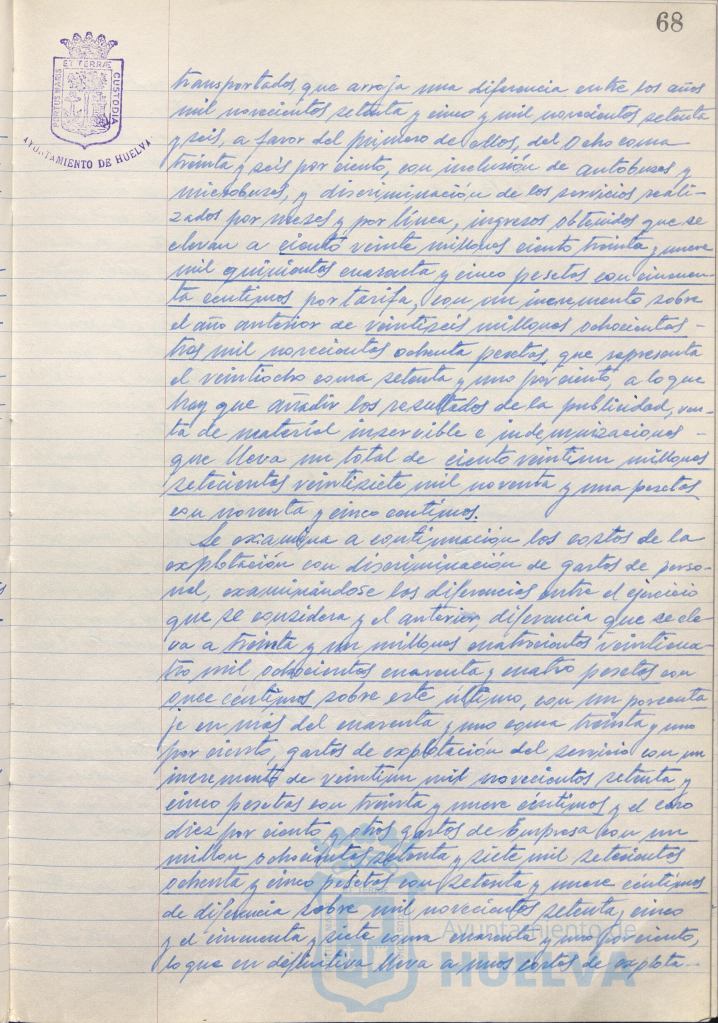 68
ET TERRAE
PORTUS MARIS
CUSTODIA
AYUNTAMIENTO DE HUELVA
transportados, que arroja una diferencia entre los años
mil novecientos setenta y cinco y mil novecientos setenta
y seis, a favor del primero de ellos, del Ocho coma
treinta y seis por ciento, con inclusión de autobuses y
microbuses, y discriminación de los servicios reali-
zados por meses y por línea, ingresos obtenidos que se
elevan a ciento veinte millones ciento treinta y nueve
mil quinientos cuarenta y cinco pesetas con cincuen-
ta centimos por tarifa, con un incremento sobre
el año anterior de veintiseis millones ochocientas -
tres mil novecientos ochenta pesetas, que representa
el veintiocho coma setenta y uno por ciento, a lo que
hay que añadir los resultados de la publicidad, ven-
ta de material inservible e indemnizaciones -
que lleva un total de ciento veintiun millones
setecientos veintisiete mil noventa y una pesetas
con noventa y cinco centimos.
Se examina a continuación los costos de la
explotación con discriminación de gastos de perso-
nal, examinándose las diferencias entre el ejercicio
que se considera y el anterior, diferencia que se ele-
va a treinta y un millones cuatrocientos veinticua-
tro mil ochocientos cuarenta y cuatro pesetas con
once céntimos sobre este último, con un porcenta
je en más del cuarenta y uno coma treinta y uno
por ciento, gastos de explotación del servicio con un
incremento de veintiun mil novecientos setenta y
cinco pesetas con treinta y nueve céntimos y el cero
diez por ciento y otros gastos de Empresa con un
millon ochocientos setenta y siete mil setecientos
ochenta y cinco pesetas con setenta y nueve céntimos
de diferencia sobre mil novecientos setenta y cinco
y el cincuenta y siete coma cuarenta y uno por ciento,
lo que en definitiva lleva a unos costos de explota--
Ayuntamiento de
HUELVA